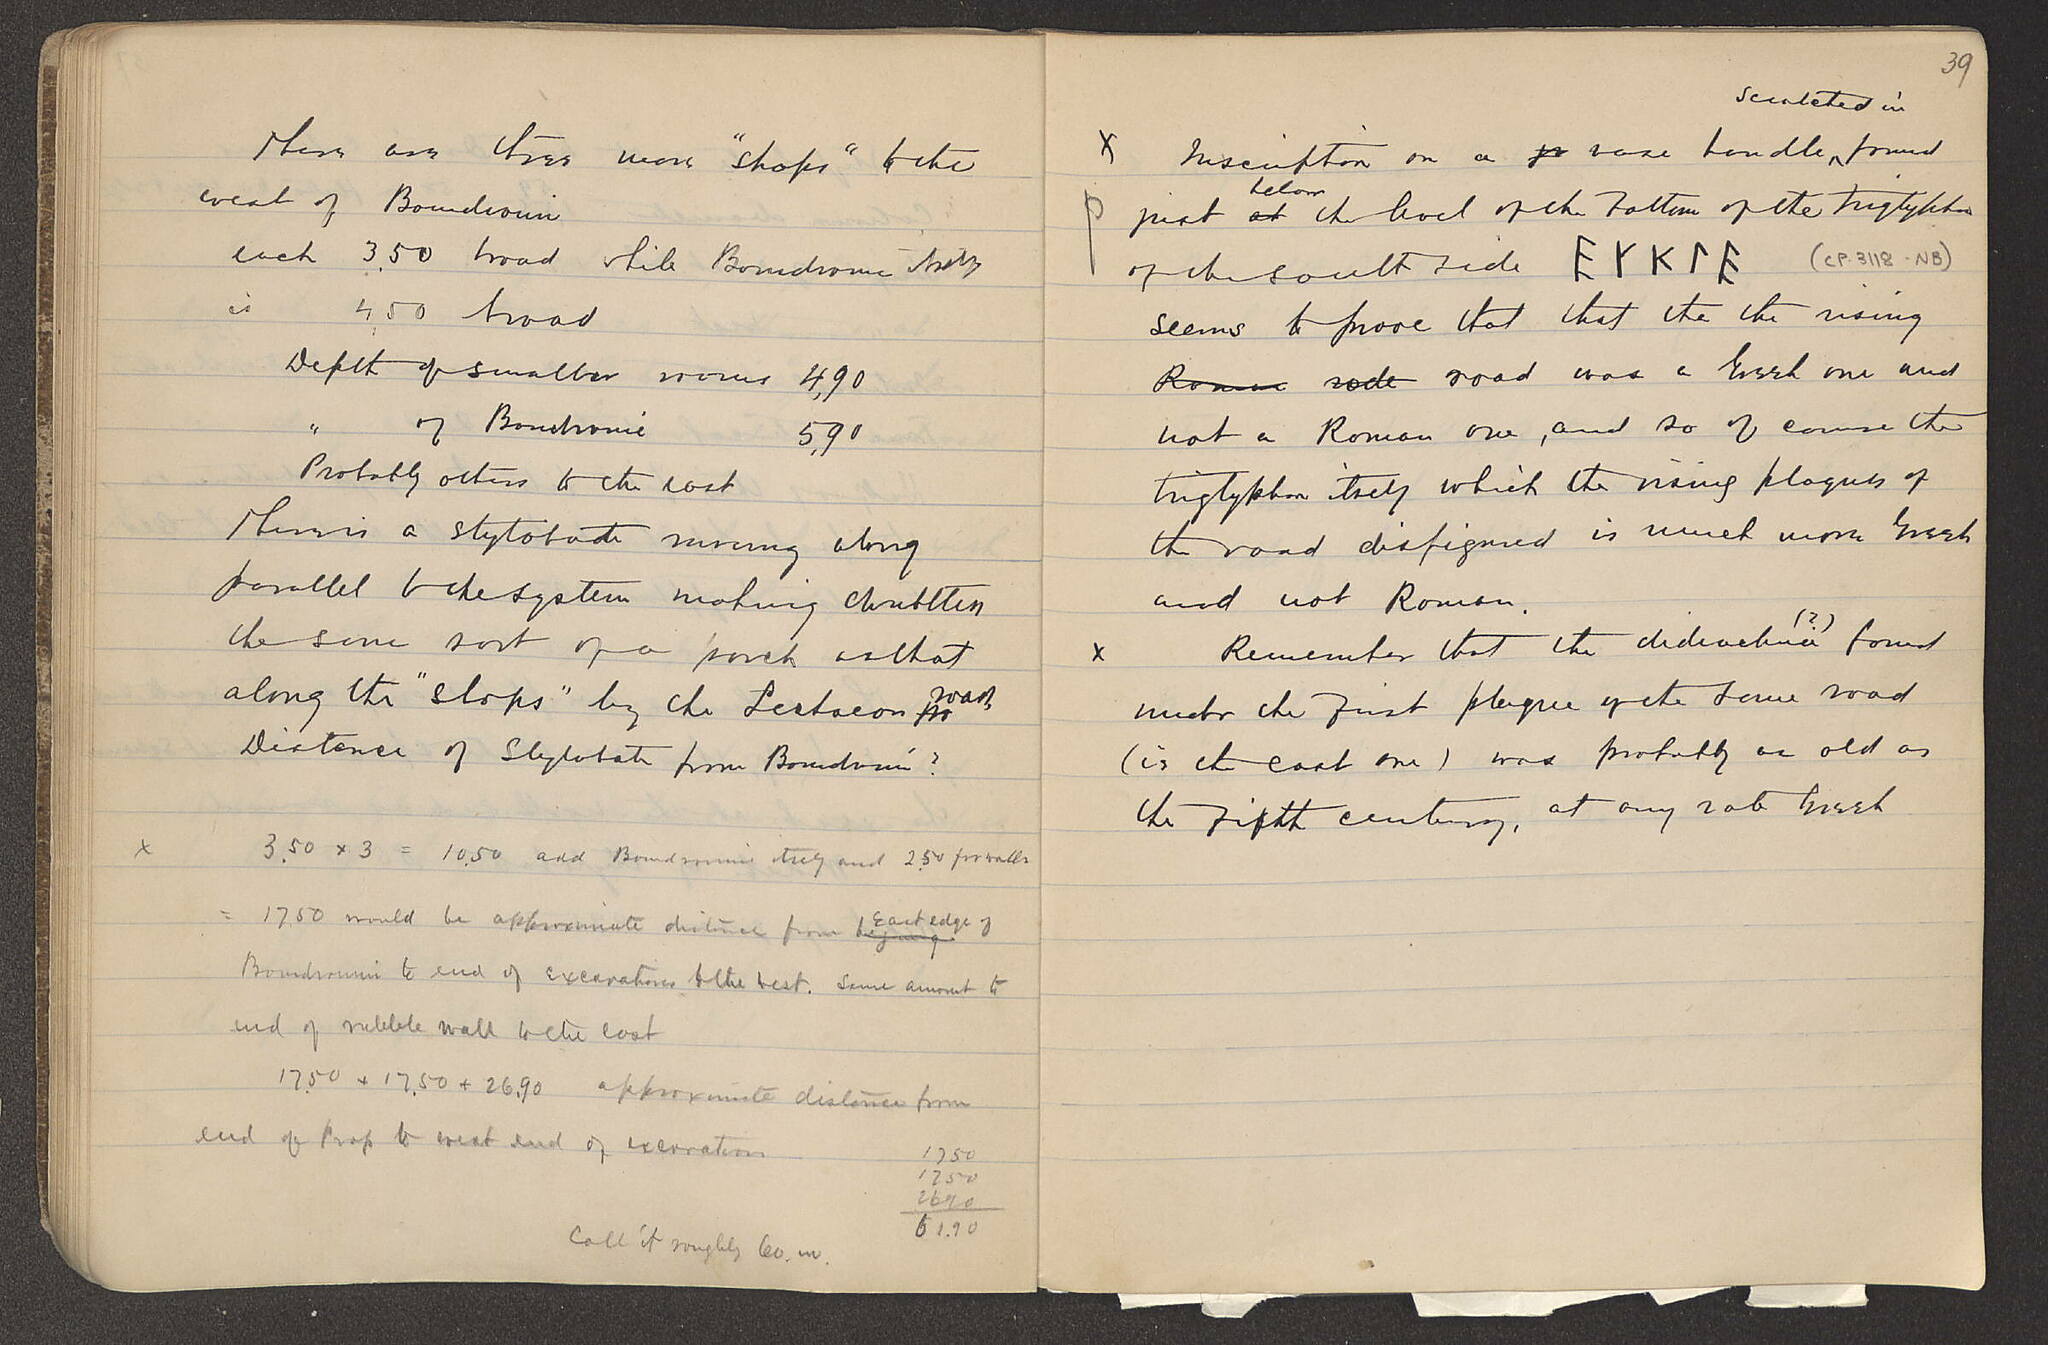 There are three more "shops" to the
west of Boudroumi
each 3.50 broad while Boudroumi itself
is 4,50 broad
Depth of smaller rooms 4,90
" of Boudroumi 5,90
Probably others to the east
There is a stylobate running along
parallel to the system making doubtless
the same sort of a porch as that
along the "shops" by the Lechaeon road
Distance of Stylobate from Boudroumi?
x 3.50 x 3 = 10.50 add Boudroumi itself and 2.50 for walls
= 17.50 would be approximate distance from East edge of
Boudroumi to end of excavations to the west. Same amount to
end of rubble wall to the east
17.50 + 17.50 + 26.90 approximate distance from
end of Prop to west end of excavations
1750
1750
2690
61.90
Call it roughly 60. m.
39
scratched in
x Inscription on a vase handle, found
just below the level of the bottom of the triglyphon
of the south side ΕΥΚΛΕ (CP-3118-NB)
seems to prove that that the the rising
Roman rode road was a Greek one and
not a Roman one, and so of course the
triglyphon itself which the rising plaques of
the road disfigured is much more Greek
and not Roman.
x Remember that the didrachma (?) found
under the first plaque of the same road
(ie the east one) was probably as old as
the fifth century, at any rate Greek